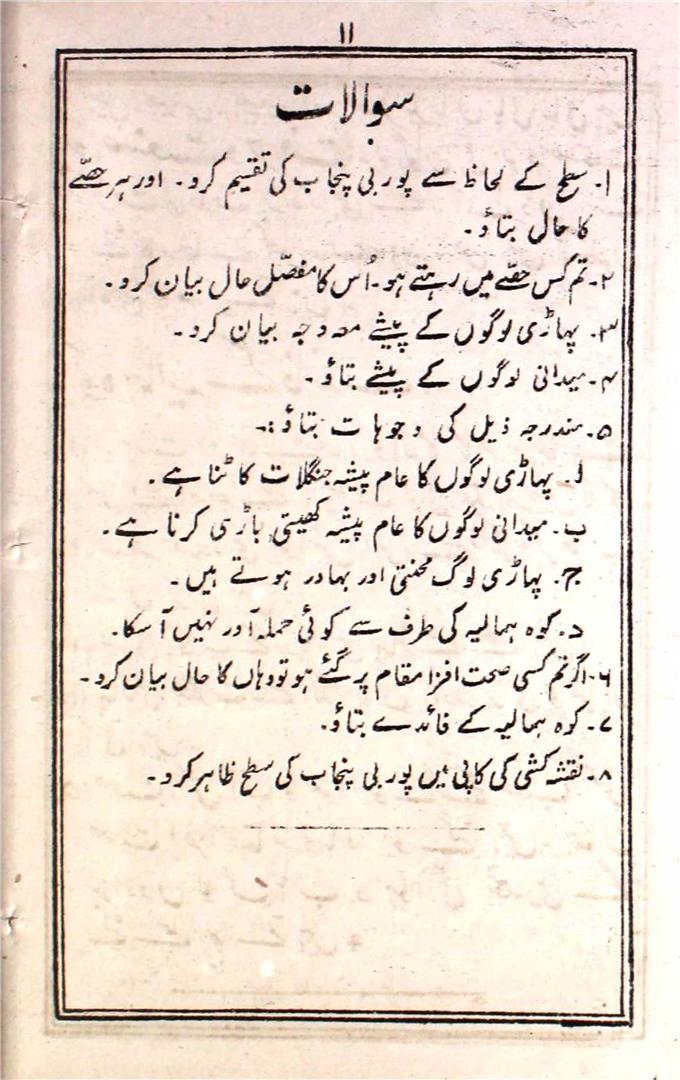 ۱۱
سوالات
۱۔ سطح کے لحاظ سے پوربی پنجاب کی تقسیم کرو۔ اور ہر حصّے
کا حال بتاؤ۔
۲۔ تم کس حصّے میں رہتے ہو۔ اُس کا مفصّل حال بیان کرو۔
۳۔ پہاڑی لوگوں کے پیشے معہ وجہ بیان کرو۔
۴۔ میدانی لوگوں کے پیشے بتاؤ۔
۵۔ مندرجہ ذیل کی وجوہات بتاؤ:۔
ا۔ پہاڑی لوگوں کا عام پیشہ جنگلات کاٹنا ہے۔
ب۔ میدانی لوگوں کا عام پیشہ کھیتی باڑی کرنا ہے۔
ج۔ پہاڑی لوگ محنتی اور بہادر ہوتے ہیں۔
د۔ کوہ ہمالیہ کی طرف سے کوئی حملہ آور نہیں آ سکا۔
۶۔ اگر تم کسی صحت افزا مقام پر گئے ہو تو وہاں کا حال بیان کرو۔
۷۔ کوہ ہمالیہ کے فائدے بتاؤ۔
۸۔ نقشہ کشی کی کاپی میں پوربی پنجاب کی سطح ظاہر کرو۔